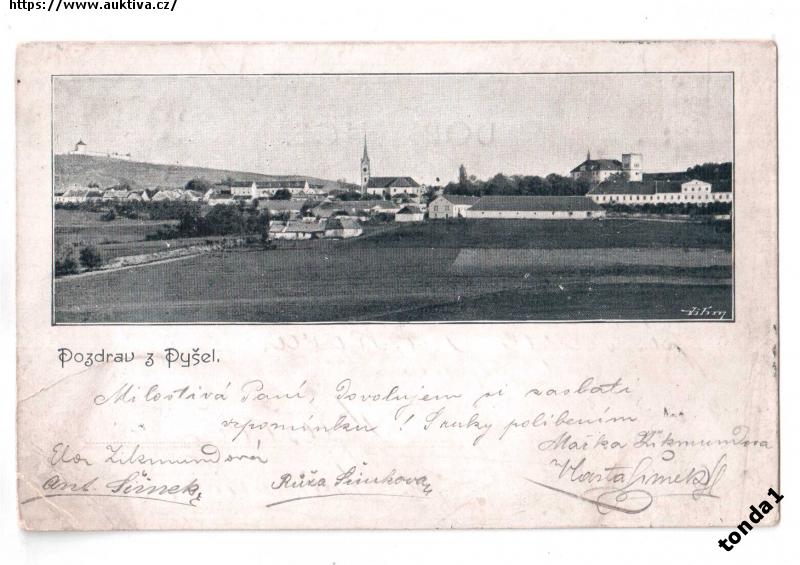 https://www.auktiva.cz/
Pozdrav z Pyšel.
Milostivá Paní, Dovolujem si zaslati
vzpomínku! S ruky políbením
Mařka Zikmundova
Zikmundová
Ant. Šimek
Růža
Vlasta Šimek
tonda1